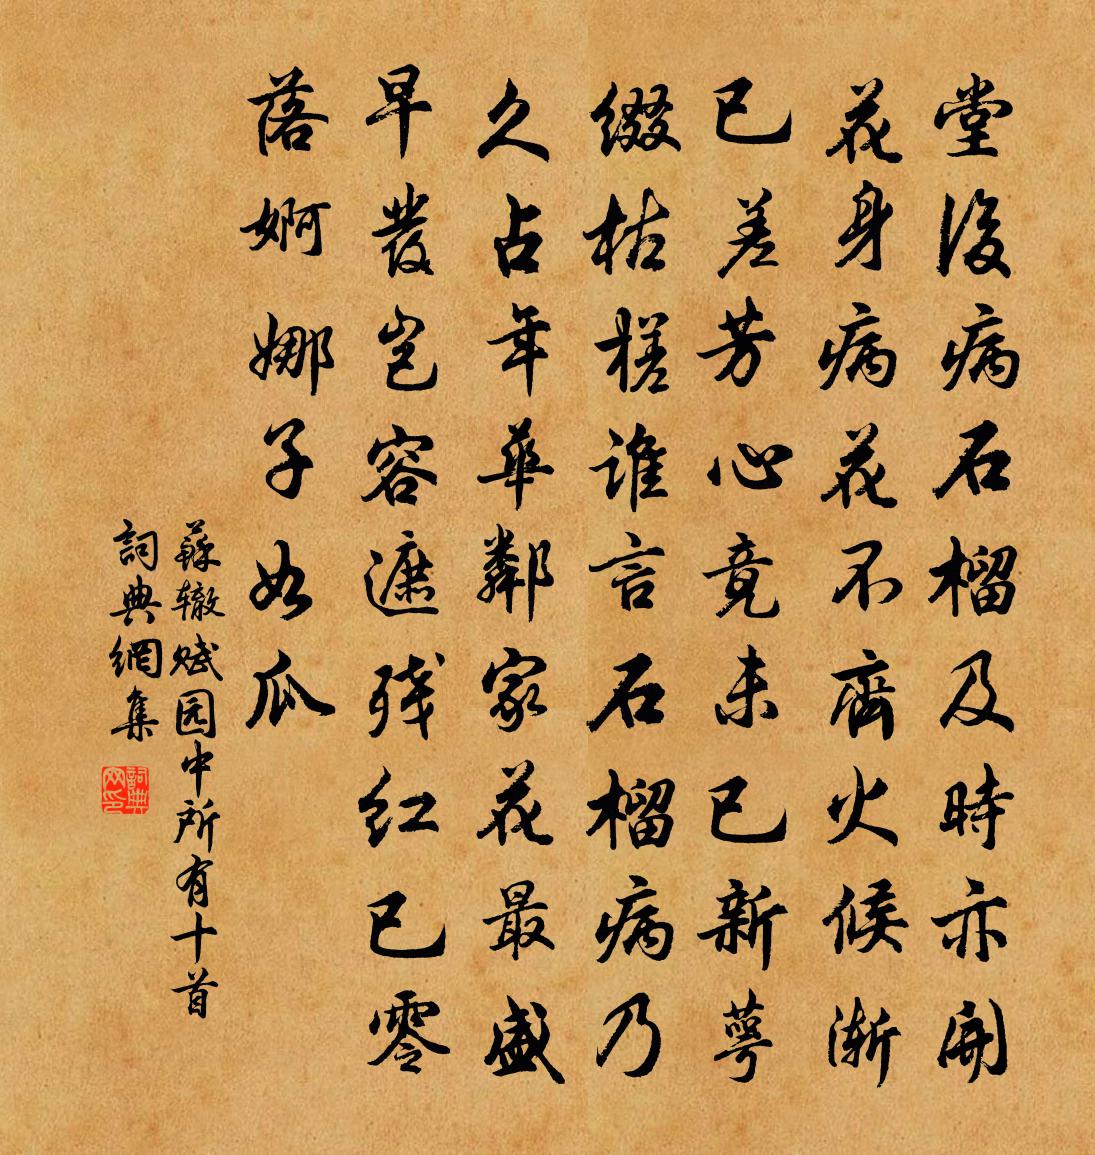 堂後病石榴及時亦開
花身病花不齊火候漸
已差芳心竟未已新萼
綴枯槎誰言石榴病乃
久占年華鄰家花最盛
早發豈容遮残红已零
落婀娜子如瓜
蘇辙赋园中所有十首
詞典網集
詞典网印